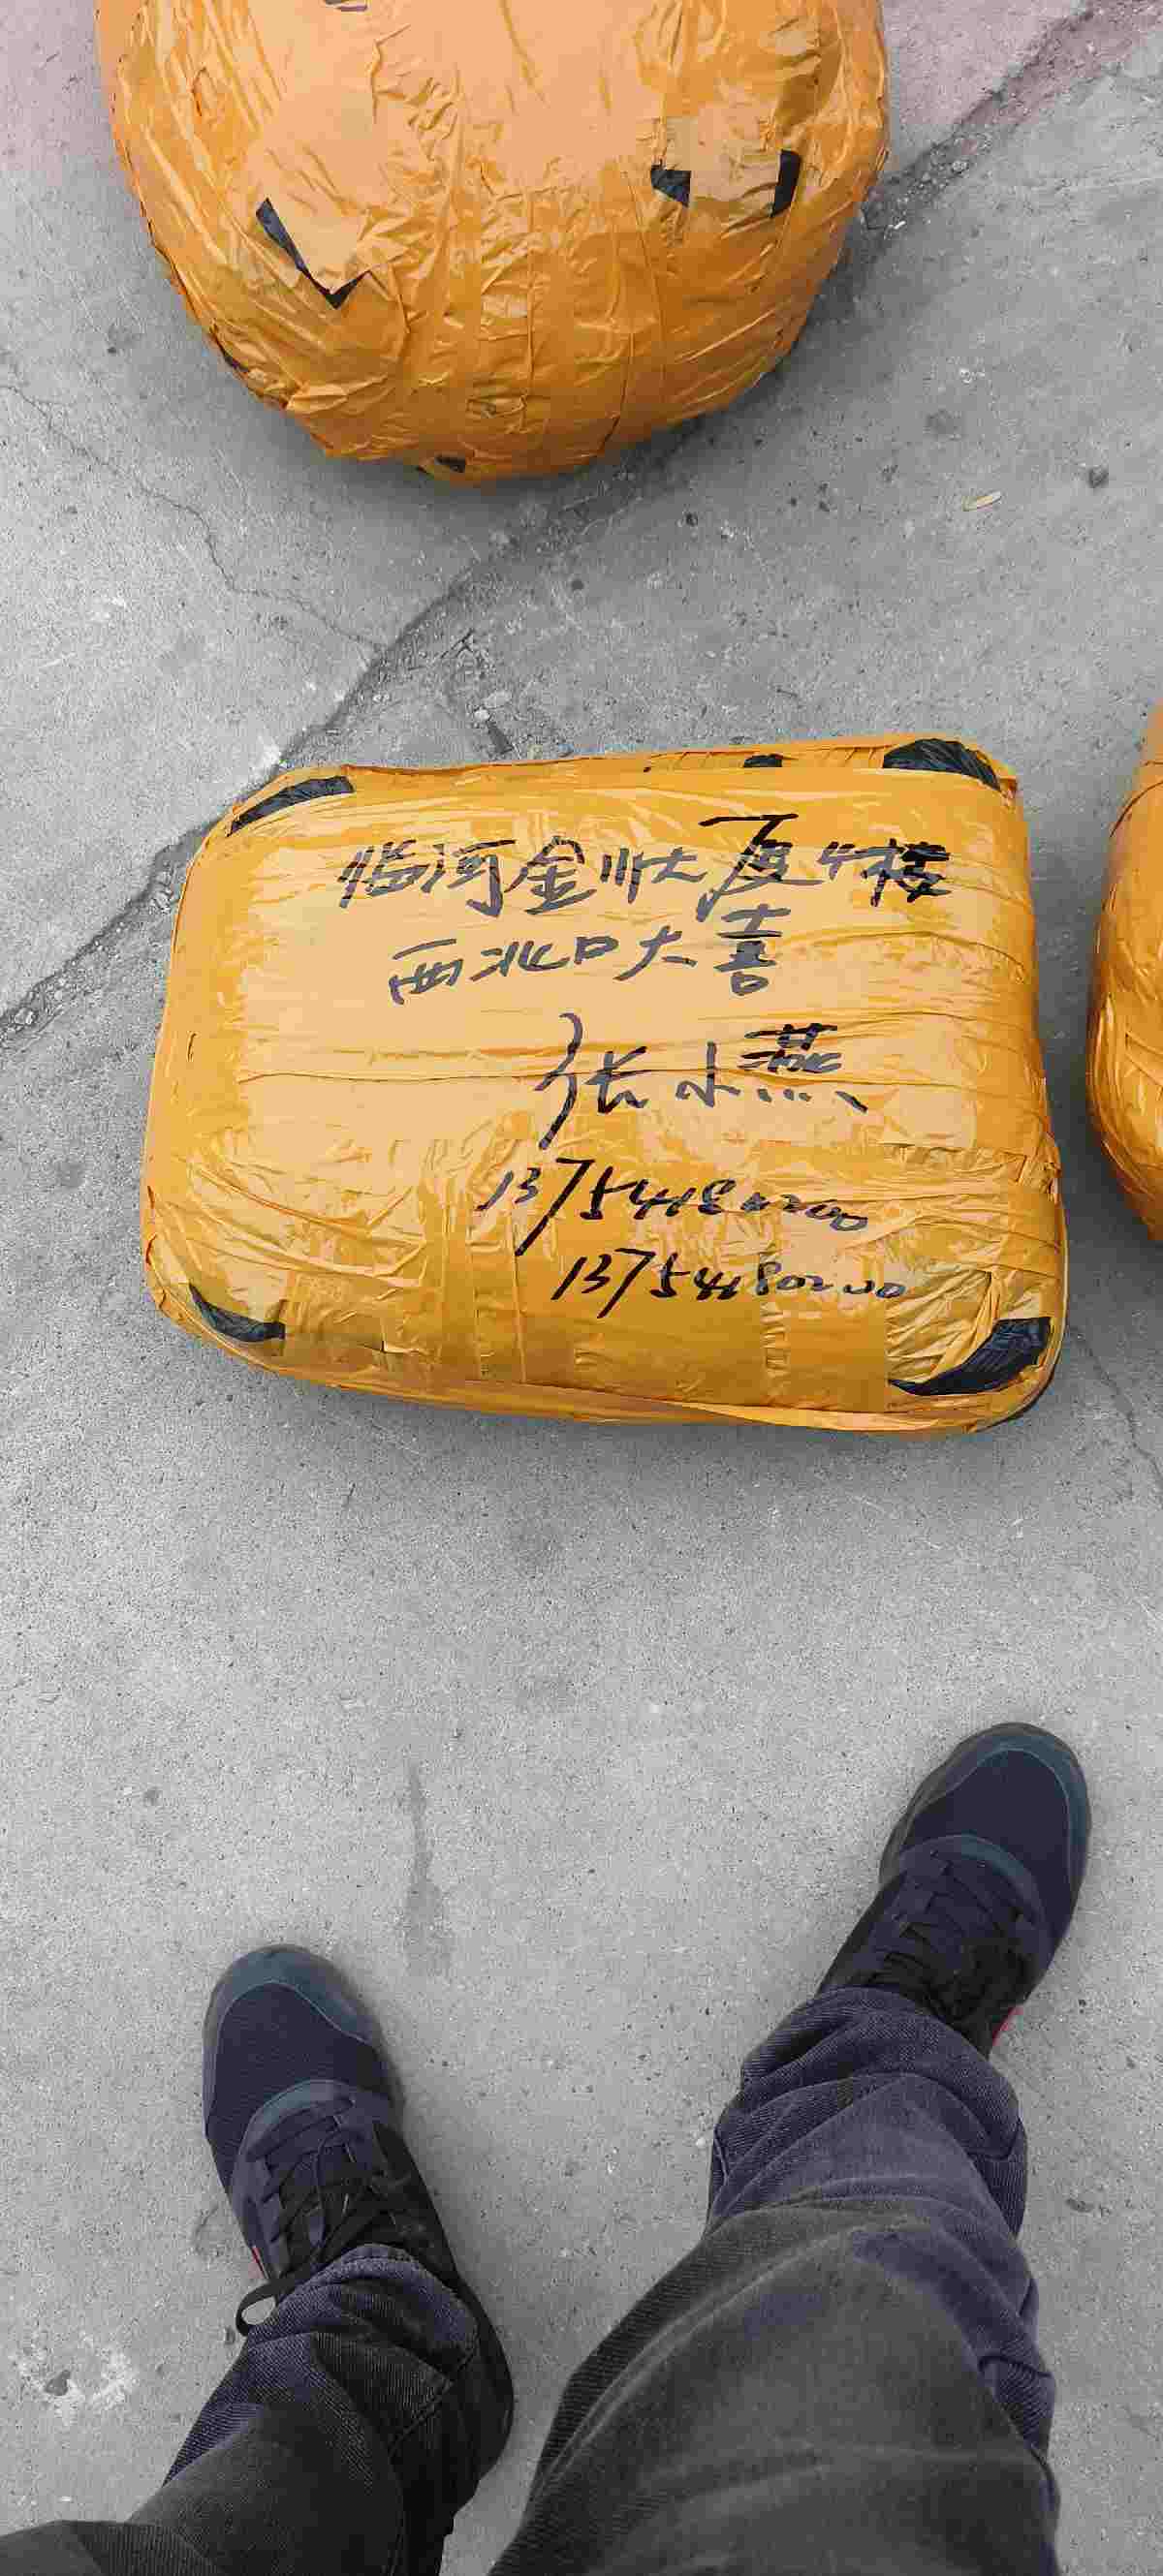 临河金川大厦4楼
西北口大喜
张小燕
13754180200
13754180200